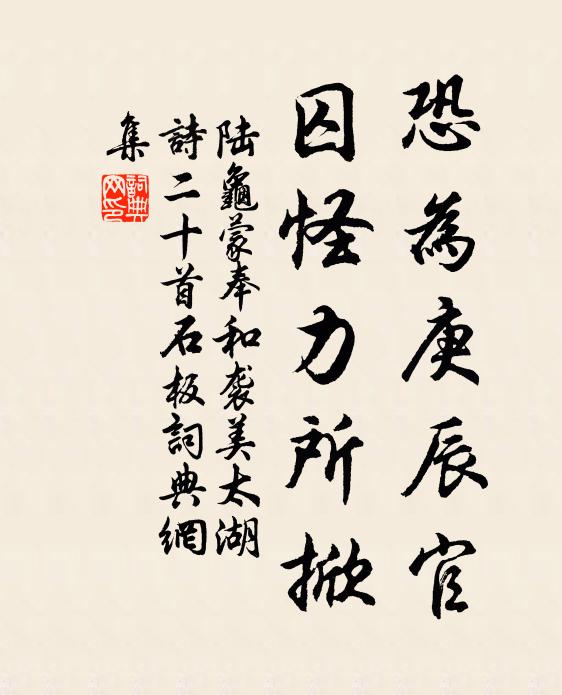 恐為庚辰官
囚怪力所掀
陸龜蒙奉和袭美太湖
詩二十首石板詞典網
集
詞典网印